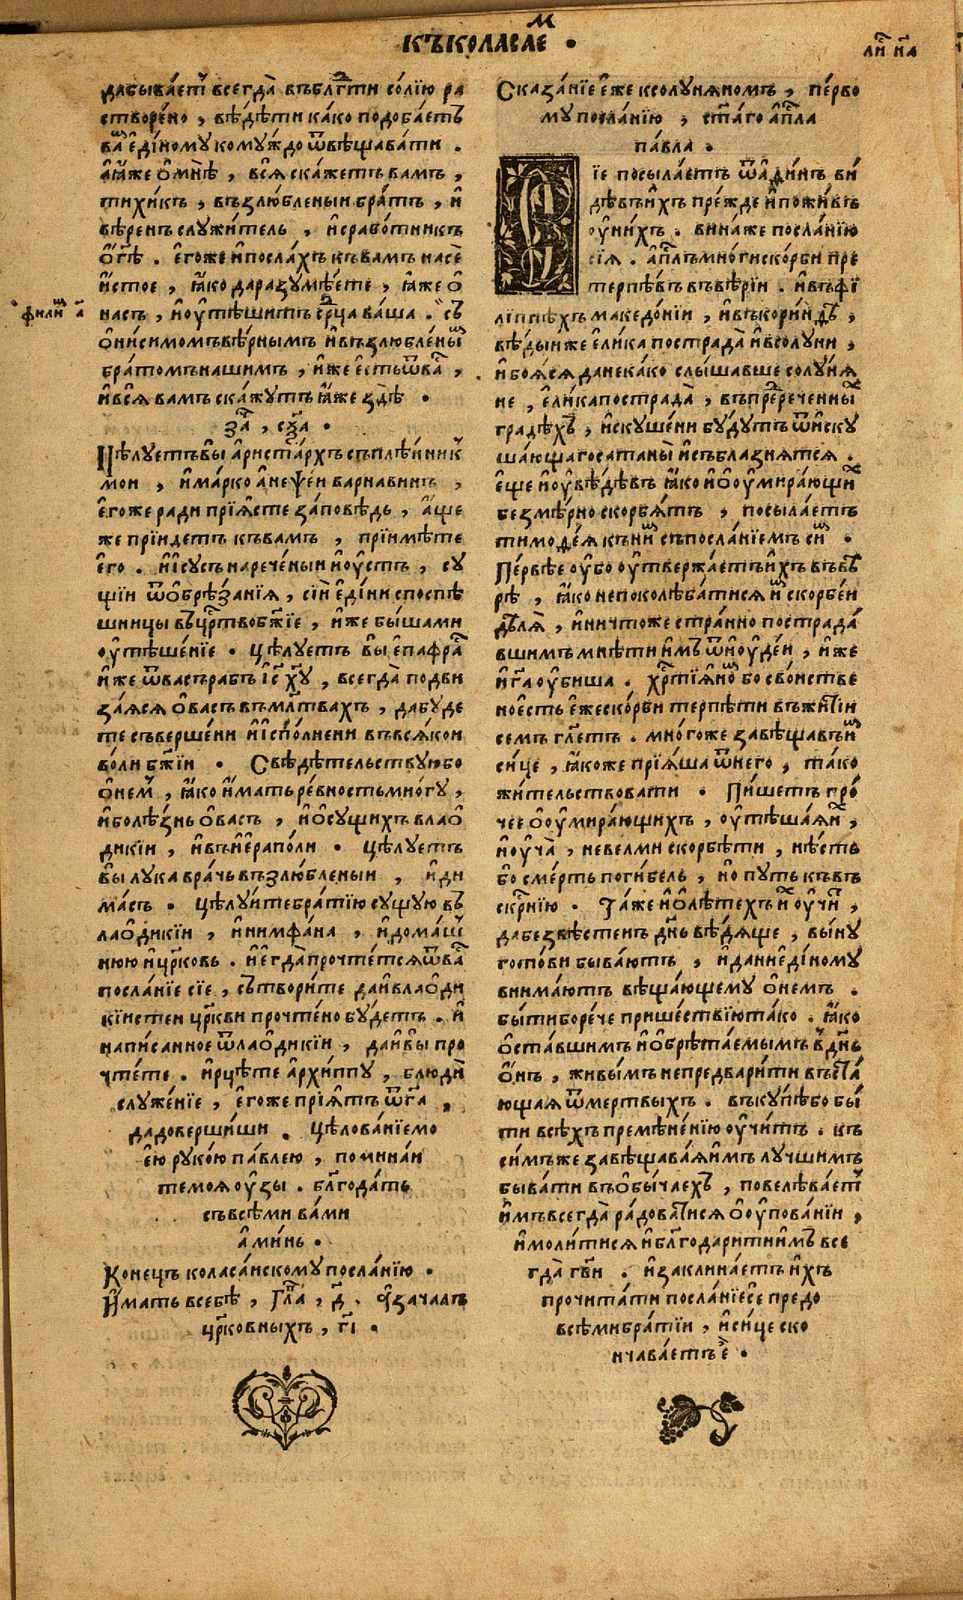 къколасаем •
ли҇ на
дабыва́етⷨ всегда̀ въбл҃гⷣти со́лїю ра
створе́но , вѣ́дѣти ка́ко подоба́етъ
ваⷨ є҆ди́ному кому́ждо ѿвѣщава́ти .
а҆ꙗ҆́же ѡ҆ мнѣ̀ , всѧ̀ ска́жетъ ва́мъ ,
тихи́къ , възлю́бленыи бра́тъ , и҆
вѣ́ренъ служи́тель , и҆ срабо́тникъ
ѡ҆ гⷭ҇ѣ . є҆го́же и҆ посла́хъ къва́мъ на сѐ
и҆́стое , ꙗ҆́ко да разумѣ́ете , ꙗ҆́же ѡ҆
на́съ , и҆ оу҆тѣ́шитъ срⷣца ва́ша . съ
ѻ҆ни́симомъ вѣ́рнымъ и҆ възлю́бленыⷨ
бра́томъ на́шимъ , и҆́же є҆́сть ѿ ваⷭ ,
и҆ всѧ̀ ва́мъ ска́жутъ ꙗ҆́же здѣ̀ •
фили́п а҃
за҃ , сх҃а •
Цѣлу́етъ вы̀ а҆риста́рхъ съплѣ́нникⸯ
мо́и , и҆ ма́рко а҆непсе́и варна́винъ ,
є҆го́же ра́ди прїѧ́сте за́повѣдь , а҆́ще
же прїи́детъ къва́мъ , прїимѣ́те
є҆го̀ . и҆ і҆исусъ нарече́ныи и҆оу́стъ , су́
щїи ѿ ѡ҆брѣ́занїѧ , сїѝ є҆ди́ни споспѣ́
шницы въ црⷭтво бж҃їе , и҆́же бы́ша ми
оу҆тѣше́нїе • цѣлу́етъ вы̀ є҆пафра́ⷭ
и҆́же ѿ ва́съ ра́бъ і҆с х҃у , всегда̀ подви
за́ѧсѧ ѡ҆ ва́съ въ мл҃твахъ , да бу́де
те съверше́ни и҆ и҆спо́лнени въ всѧ́кои
во́ли бж҃їи • Свѣдѣ́тельствую бо
ѡ҆ не́мⸯ , ꙗ҆́ко и҆́мать ре́вность мно́гу ,
и҆ болѣ́знь ѡ҆ ва́съ , и҆ ѡ҆ су́щихъ в лаѻ
диќїи , и҆ въ и҆ера́поли • цѣлу́етъ
вы̀ лука̀ вра́чь възлю́бленыи , и҆ ди
ма́съ • цѣлу́ите бра́тїю су́щую въ
лаѻдикі́и , и҆ нимфа́на , и҆ дома́ш
нюю и҆ цр҃ковь . и҆ є҆гда̀ прочте́тсѧ ѿ ваⷭ
посла́нїе сїѐ , сътвори́те да и҆ в лаѻди
кі́истеи цр҃кви прочте́но бу́детъ . и҆
напи́санное ѿ лаѻдикі́и , да и҆ вы̀ про
чте́те . и҆ рцѣ́те а҆рхи́ппу , блюдѝ
служе́нїе , є҆го́же прїѧ́тъ ѿ гⷭ҇а ,
да доверши́ши . цѣлова́нїе мо
є҆́ю руко́ю па́влею , помина́и
те моѧ̀ оу҆́зы . бл҃года́ть
съ все́ми ва́ми
а҆ми́нь •
Коне́цъ коласа́искому посла́нїю •
И҆́мать в себѣ̀ , гл҃а , д҃ . Оу҆ зача́лъ
цр҃ковныхъ , г҃і •
Сказа́нїе є҆́же к солу́нѧномъ , пе́рво
му посла́нїю , ст҃а́го а҆пⷭ҇ла
па́вла •
Сїѐ посыла́етъ ѿ а҆ѳи́нъ ви́
дѣвъ и҆́хъ пре́жде и҆ пожи́въ
оу҆ ни́хъ . вина́ же посла́нїю
сїѧ̀ . а҆пⷭ҇лъ мно́ги ско́рби пре
терпѣ́въ въ вѣ́рїи . и҆ въ фі
лі́пиѣхъ македо́нїи , и҆ въ кори́нѳѣ ,
вѣ́дыи же є҆ли́ка пострада̀ и҆ в солу́ни ,
и҆ боѧ́сѧ да не ка́ко слы́шавше солу́нѧ
не , є҆ли́ка пострада̀ , въ прⷣере́ченныⷯ
градѣ́хъ , и҆ скуше́ни бу́дутъ ѿ и҆ску
ша́ющаго сатаны̀ и҆ съблазнѧ́тсѧ .
є҆ще́ и҆ оу҆вѣ́дѣвъ ꙗ҆́ко и҆ ѡ҆ оу҆мира́ющиⷯ
безмѣ́рно скорбѧ́тъ , посыла́етъ
тимоѳе́ѧ къ ни́ⷨ съ посла́нїемъ си́ⷨ .
Пе́рвѣе оу҆́бо оу҆твержа́етъ и҆́хъ въ вѣ́
рѣ , ꙗ҆́ко не поколѣба́тисѧ и҆ⷨ скорбе́и
дѣлѧ̀ , и҆ ничто́же стра́нно пострада́
вшимъ мнѣ́ти и҆́мъ ѿ и҆оуде́и , и҆́же
и҆ гⷭ҇а оу҆би́ша . хрⷭтїѧ́ноⷨ бо сво́иствe
но е҆́сть є҆́же ско́рби терпѣ́ти въ житїи́
се́мъ гл҃етъ . мно́го же завѣща́въ и҆́ⷨ
си́це , ꙗ҆́коже прїѧ́ша ѿ него̀ , та́ко
жи́тельствовати • Пи́шетъ про́
чее ѡ҆ оу҆мира́ющихъ , оу҆тѣша́ѧ и҆ⷯ ,
и҆ оу҆ча̀ , не велмѝ скорбѣ́ти , нѣ́сть
бо сме́рть поги́бель , но пу́ть къ въ
скр҃нїю • Та́же и҆ ѡ҆ лѣ́техъ и҆ⷯ оу҆чи́т ,
да безвѣ́стенъ дн҃ь вѣ́дѧще , вы́ну
гото́ви быва́ютъ , и҆ да ни є҆ди́ному
внима́ютъ вѣща́ющему ѡ҆ не́мъ .
бы́ти бо рече́ прише́ствїю та́ко . ꙗ҆́ко
ѡ҆ста́вшимъ и҆ ѡ҆брѣта́емымъ в дн҃ь
ѡ҆́нъ , живы́мъ не предвари́ти въста
ю́щаѧ ѿ ме́ртвыхъ . въку́пѣ бо бы́
ти всѣ́хъ премѣне́нїю оу҆чи́тъ . къ
си́мъ же завѣщава́ѧ и҆́мъ лу́чшимъ
быва́ти въ ѡ҆бы́чаехъ , повелѣва́етъ
и҆́мъ всегда̀ ра́доватисѧ ѡ҆ оу҆пова́нїи ,
и҆ моли́тисѧ и҆ бл҃годари́ти и҆́мъ все
гда̀ гв҃и . и҆ заклина́етъ и҆́хъ
прочита́ти посла́нїе сѐ предо
всѣ́ми бра́тїи , и҆ си́це ско
нчава́етъ є҆̀ •